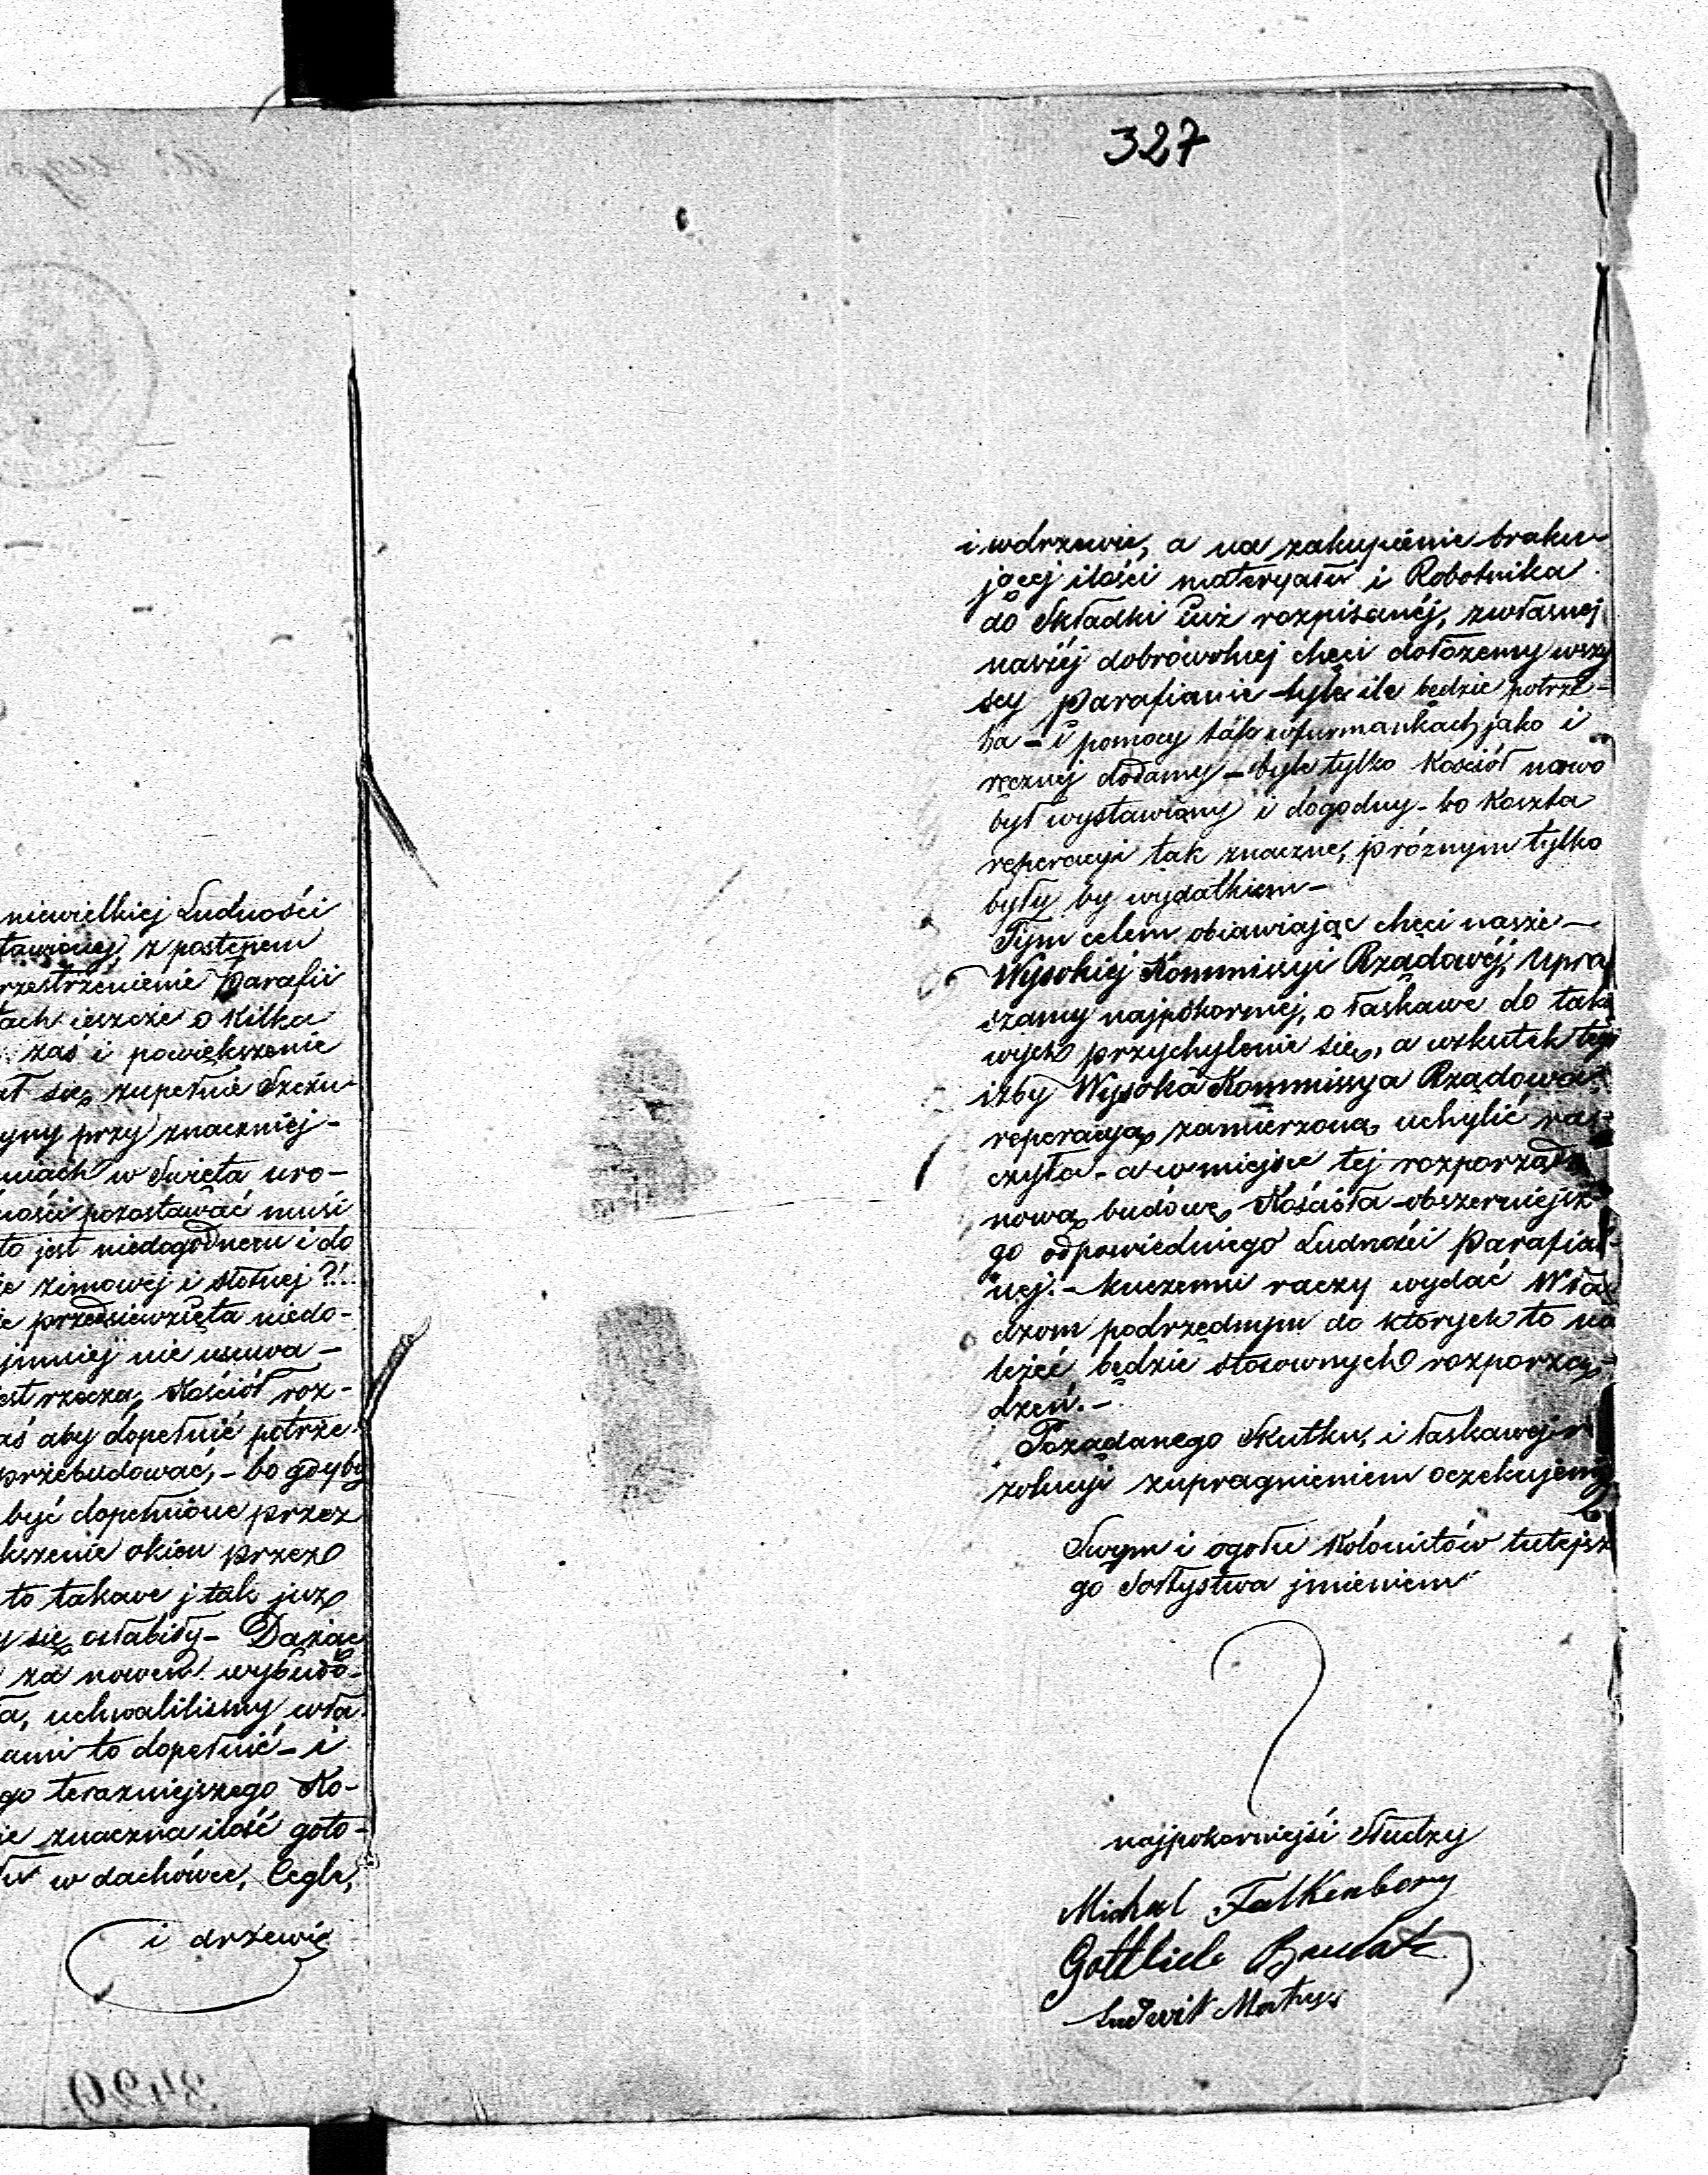 niewielkiej Ludności
tawioney, z postępem
rzestrzenienie Parafii
tach ieszcze o kilka
zaś i powiększenie
ał się zupełnie Szczu-
yny przy znaczniej-
niach w Święta uro-
ności pozostawać musi
to jest niedogodnem i do
ie zimowej i słotnej ?!..
ie przedsiewzięta niedo-
jmniej nie usuwa -
est rzeczą, Kościół roz-
aś aby dopełnić potrze-
przebudować, - bo gdyby
być dopełnione przez
kszenie okien przez
to takowe j tak już
y się osłabiły - Dążąc
za nowem wybudo-
a, uchwaliliśmy wła
ami to dopełnić - i
go teraźniejszego Ko-
ie znaczna ilość goto-
łu w dachówce, Cegle,
i drzewie
327
i wdrzewie, a na zakupienie braku-
jącej ilości materyału i Robotnika
do Składki Już rozpisanéj, zwłasnej
naszéj dobrowolnej chęci dołożemy wszy
scy Parafianie tyle ile będzie potrze-
ba - i pomocy tak wfurmankach jako i
ręcznej dodamy - byle tylko Kościół nowo
był wystawiony i dogodny - bo Koszta
reperacyi tak znaczne, próżnym tylko
były by wydatkiem -
Tym celem obiawiając chęci nasze -
Wysokiej Kommissyi Rządowéj, upra
szamy najpokorniej, o łaskawe do tako
wych przychylenie się, a wskutek tego
iżby Wysoka Kommissya Rządowa
reperacyą zamierzoną uchylić ra-
czyła - a w miejsce tej rozporządz
nową budowę Kościoła - obszerniejsze
go odpowiedniego Ludności Parafial-
nej. - kuczemu raczy wydać Wła
dzom podrzędnym do których to na
leżeć będzie stosownych rozporzą-
dzeń. -
Pożądanego Skutku, i łaskawej re
zolucyi zupragnieniem oczekujemy
Swym i ogółu Kolonistów tutejsze
go Sołtystwa jmieniem
najpokorniejsi Słudzy
Michał Falkenberg
Gottlieb
Ludwik